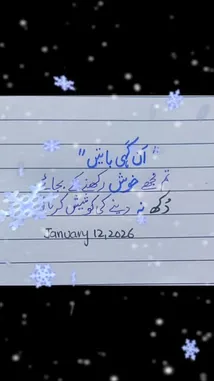 "ان کہی باتیں"
تم مجھے خوش رکھنے کے بجائے
دُکھ نہ دینے کی کوشش کرنا
January 12, 2026